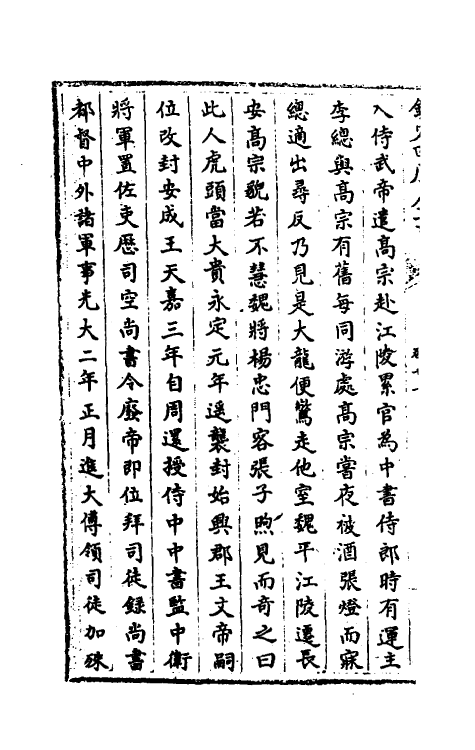 入侍武帝遣髙宗赴江陵累官為中書侍郎時有運主
李總與髙宗有舊每同游處髙宗嘗夜被酒張燈而寐
總適出尋反乃見是大龍便驚走他室魏平江陵遷長
安髙宗貌若不慧魏將楊忠門客張子煦見而奇之曰
此人虎頭當大貴永定元年遥襲封始興郡王文帝嗣
位改封安成王天嘉三年自周還授侍中中書監中衛
將軍置佐吏歴司空尚書令廢帝即位拜司徒録尚書
都督中外諸軍事光大二年正月進大傅領司徒加殊